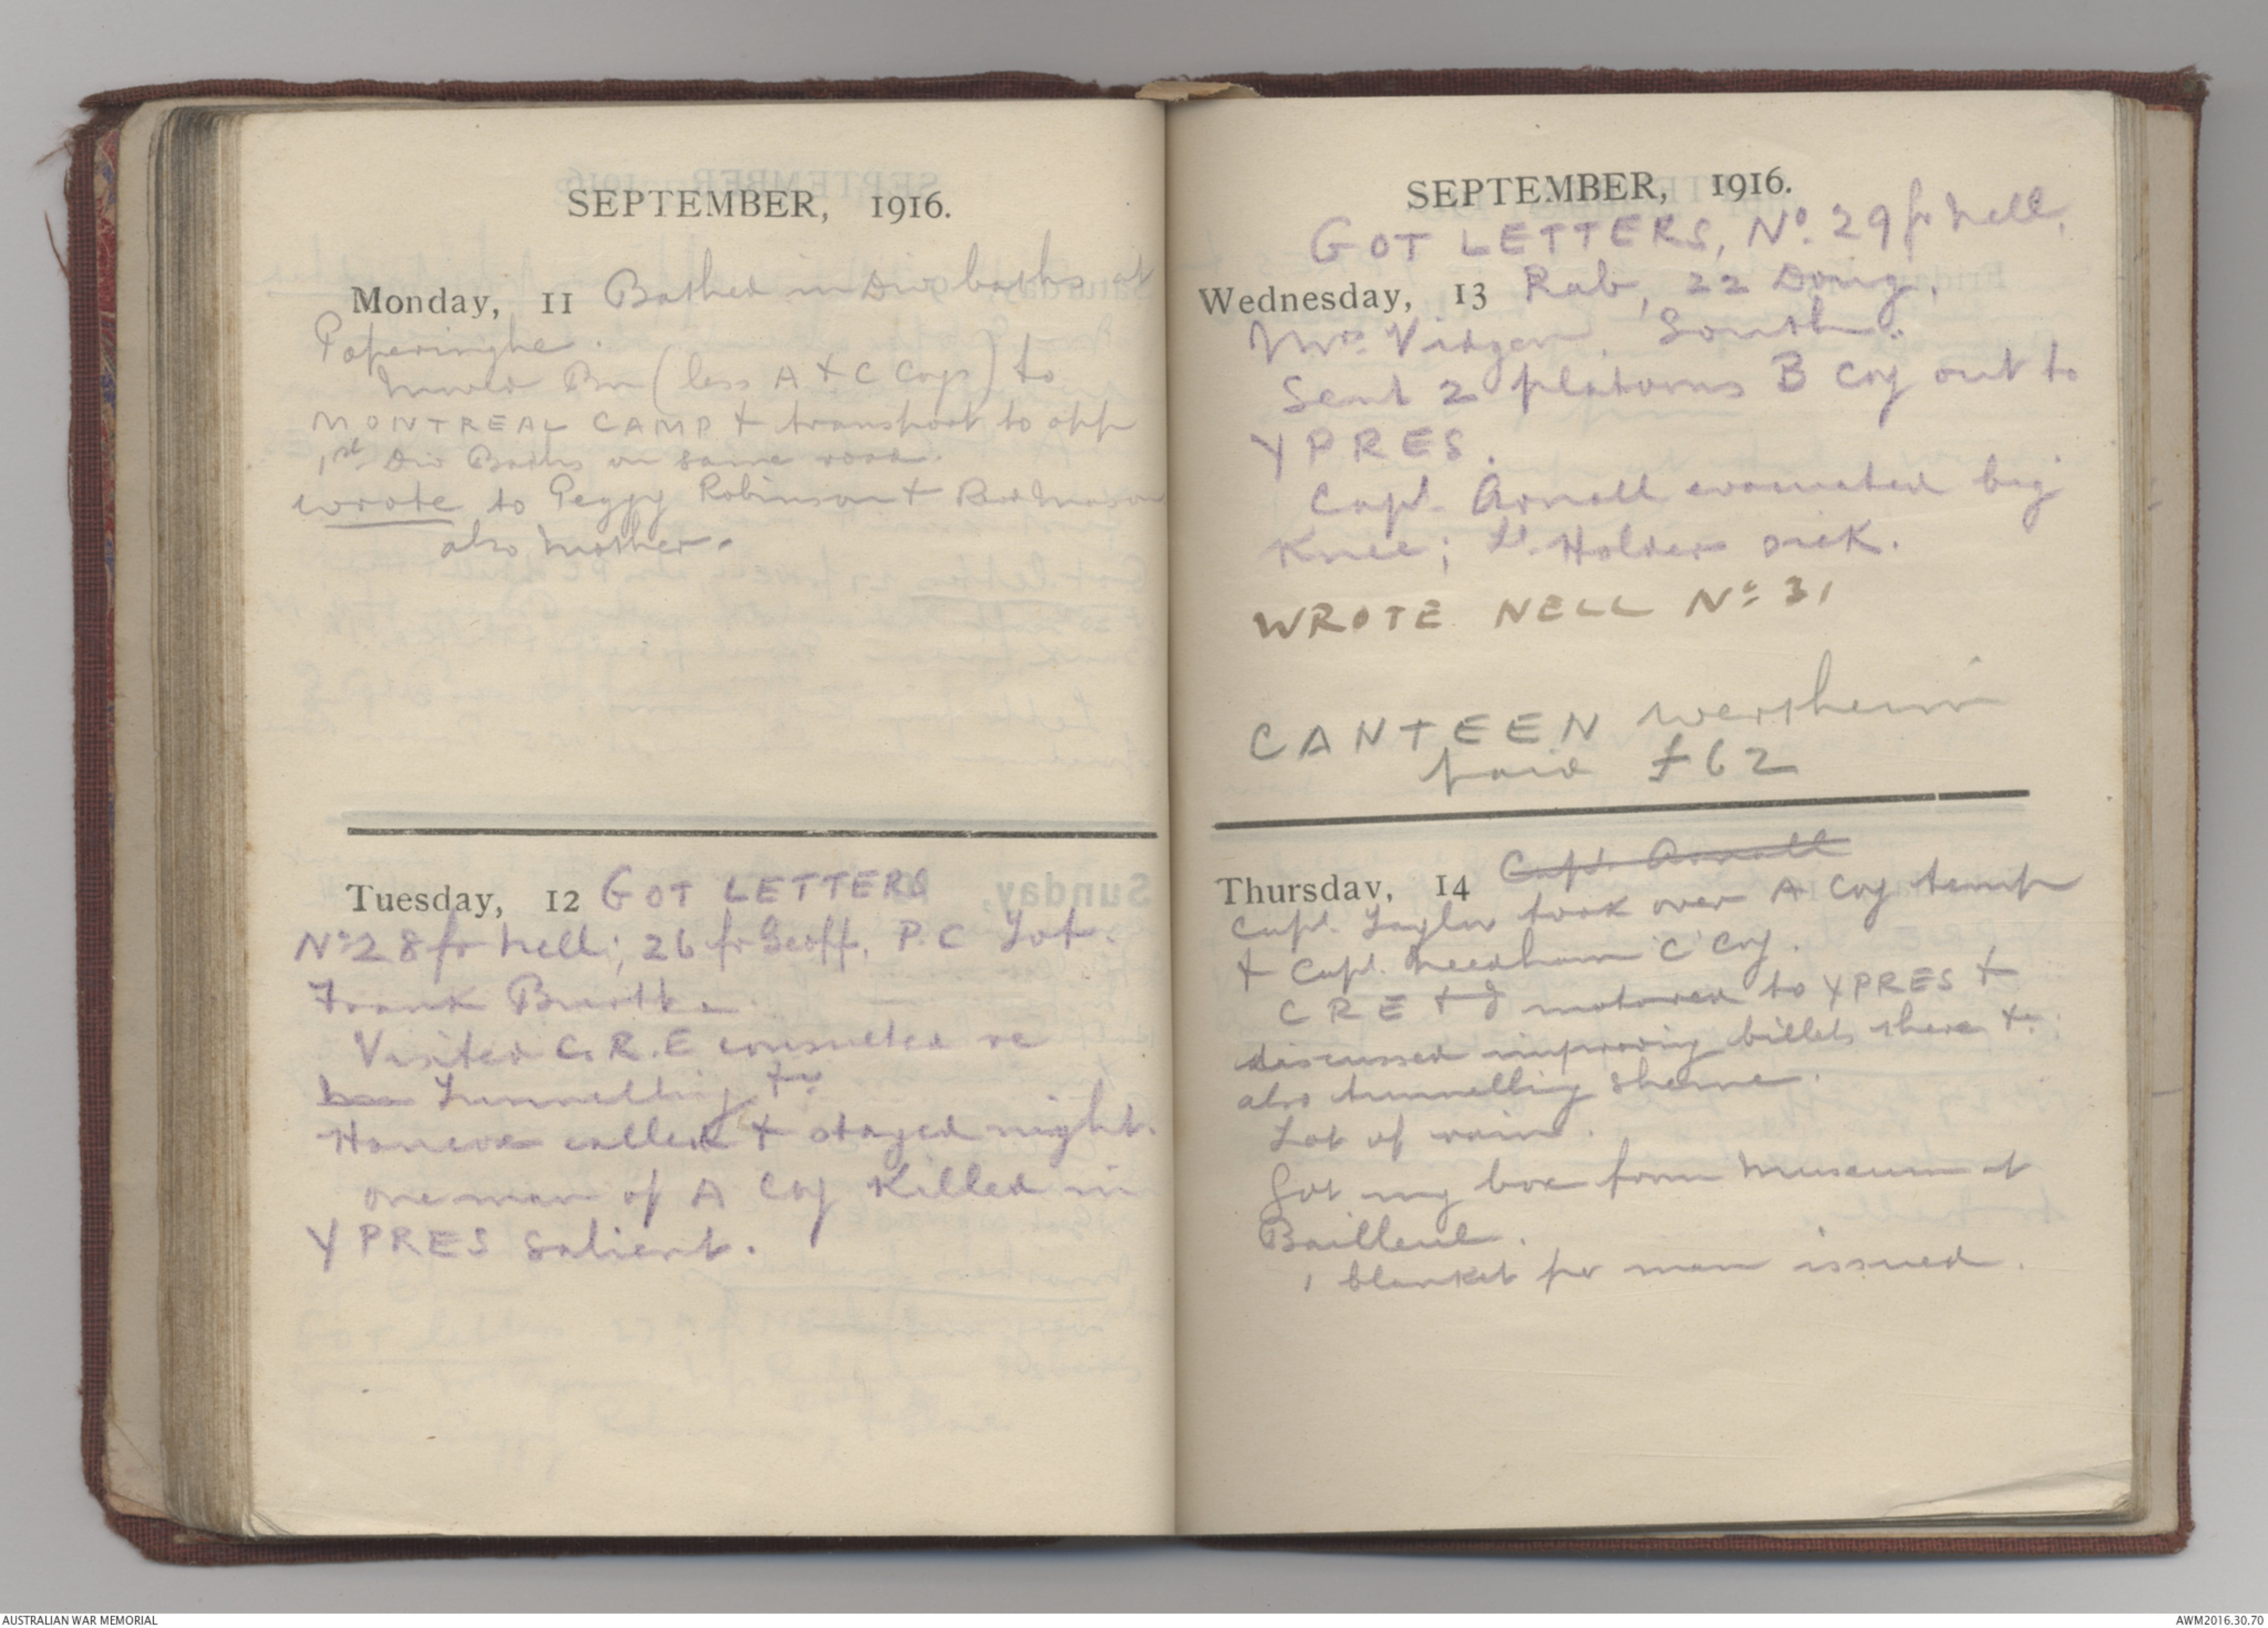 SEPTEMBER, 1916.
Monday, 11 Bathed in Div baths at
Poperinghe.
Moved Bn (less A & C Coys) to
MONTREAL CAMP & transport to opp
1st Div Baths on same road.
wrote to Peggy Robinson &
also Mother.
Tuesday, 12 GOT LETTERS
No 28 fr Nell; 26 fr Geoff, P.C Tot.
Frank
Visited C.R.E consulted re
Tunnelling &c
called & stayed night.
one man of A Coy Killed in
YPRES salient.
SEPTEMBER, 1916.
GOT LETTERS, No. 29 fr Nell,
Wednesday, 13 Rab, 22 Doing,
Mrs Vidgen, South.
Sent 2 platoons B Coy out to
YPRES.
Capt. Arnall evacuated big
Knee; Lt. Holder sick.
WROTE NELL No 31
CANTEEN Wertheim
paid £62
Capt. Arnall
Thursday, 14
Capt. Taylor took over A Coy temp
& Capt. Needham C Coy.
C R E & I motored to YPRES &
discussed improving billets there &
also tunnelling sheme.
Lot of rain.
Got my box from Museum at
Bailleul.
1 blanket per man issued.
AUSTRALIAN WAR MEMORIAL
AWM2016.30.70